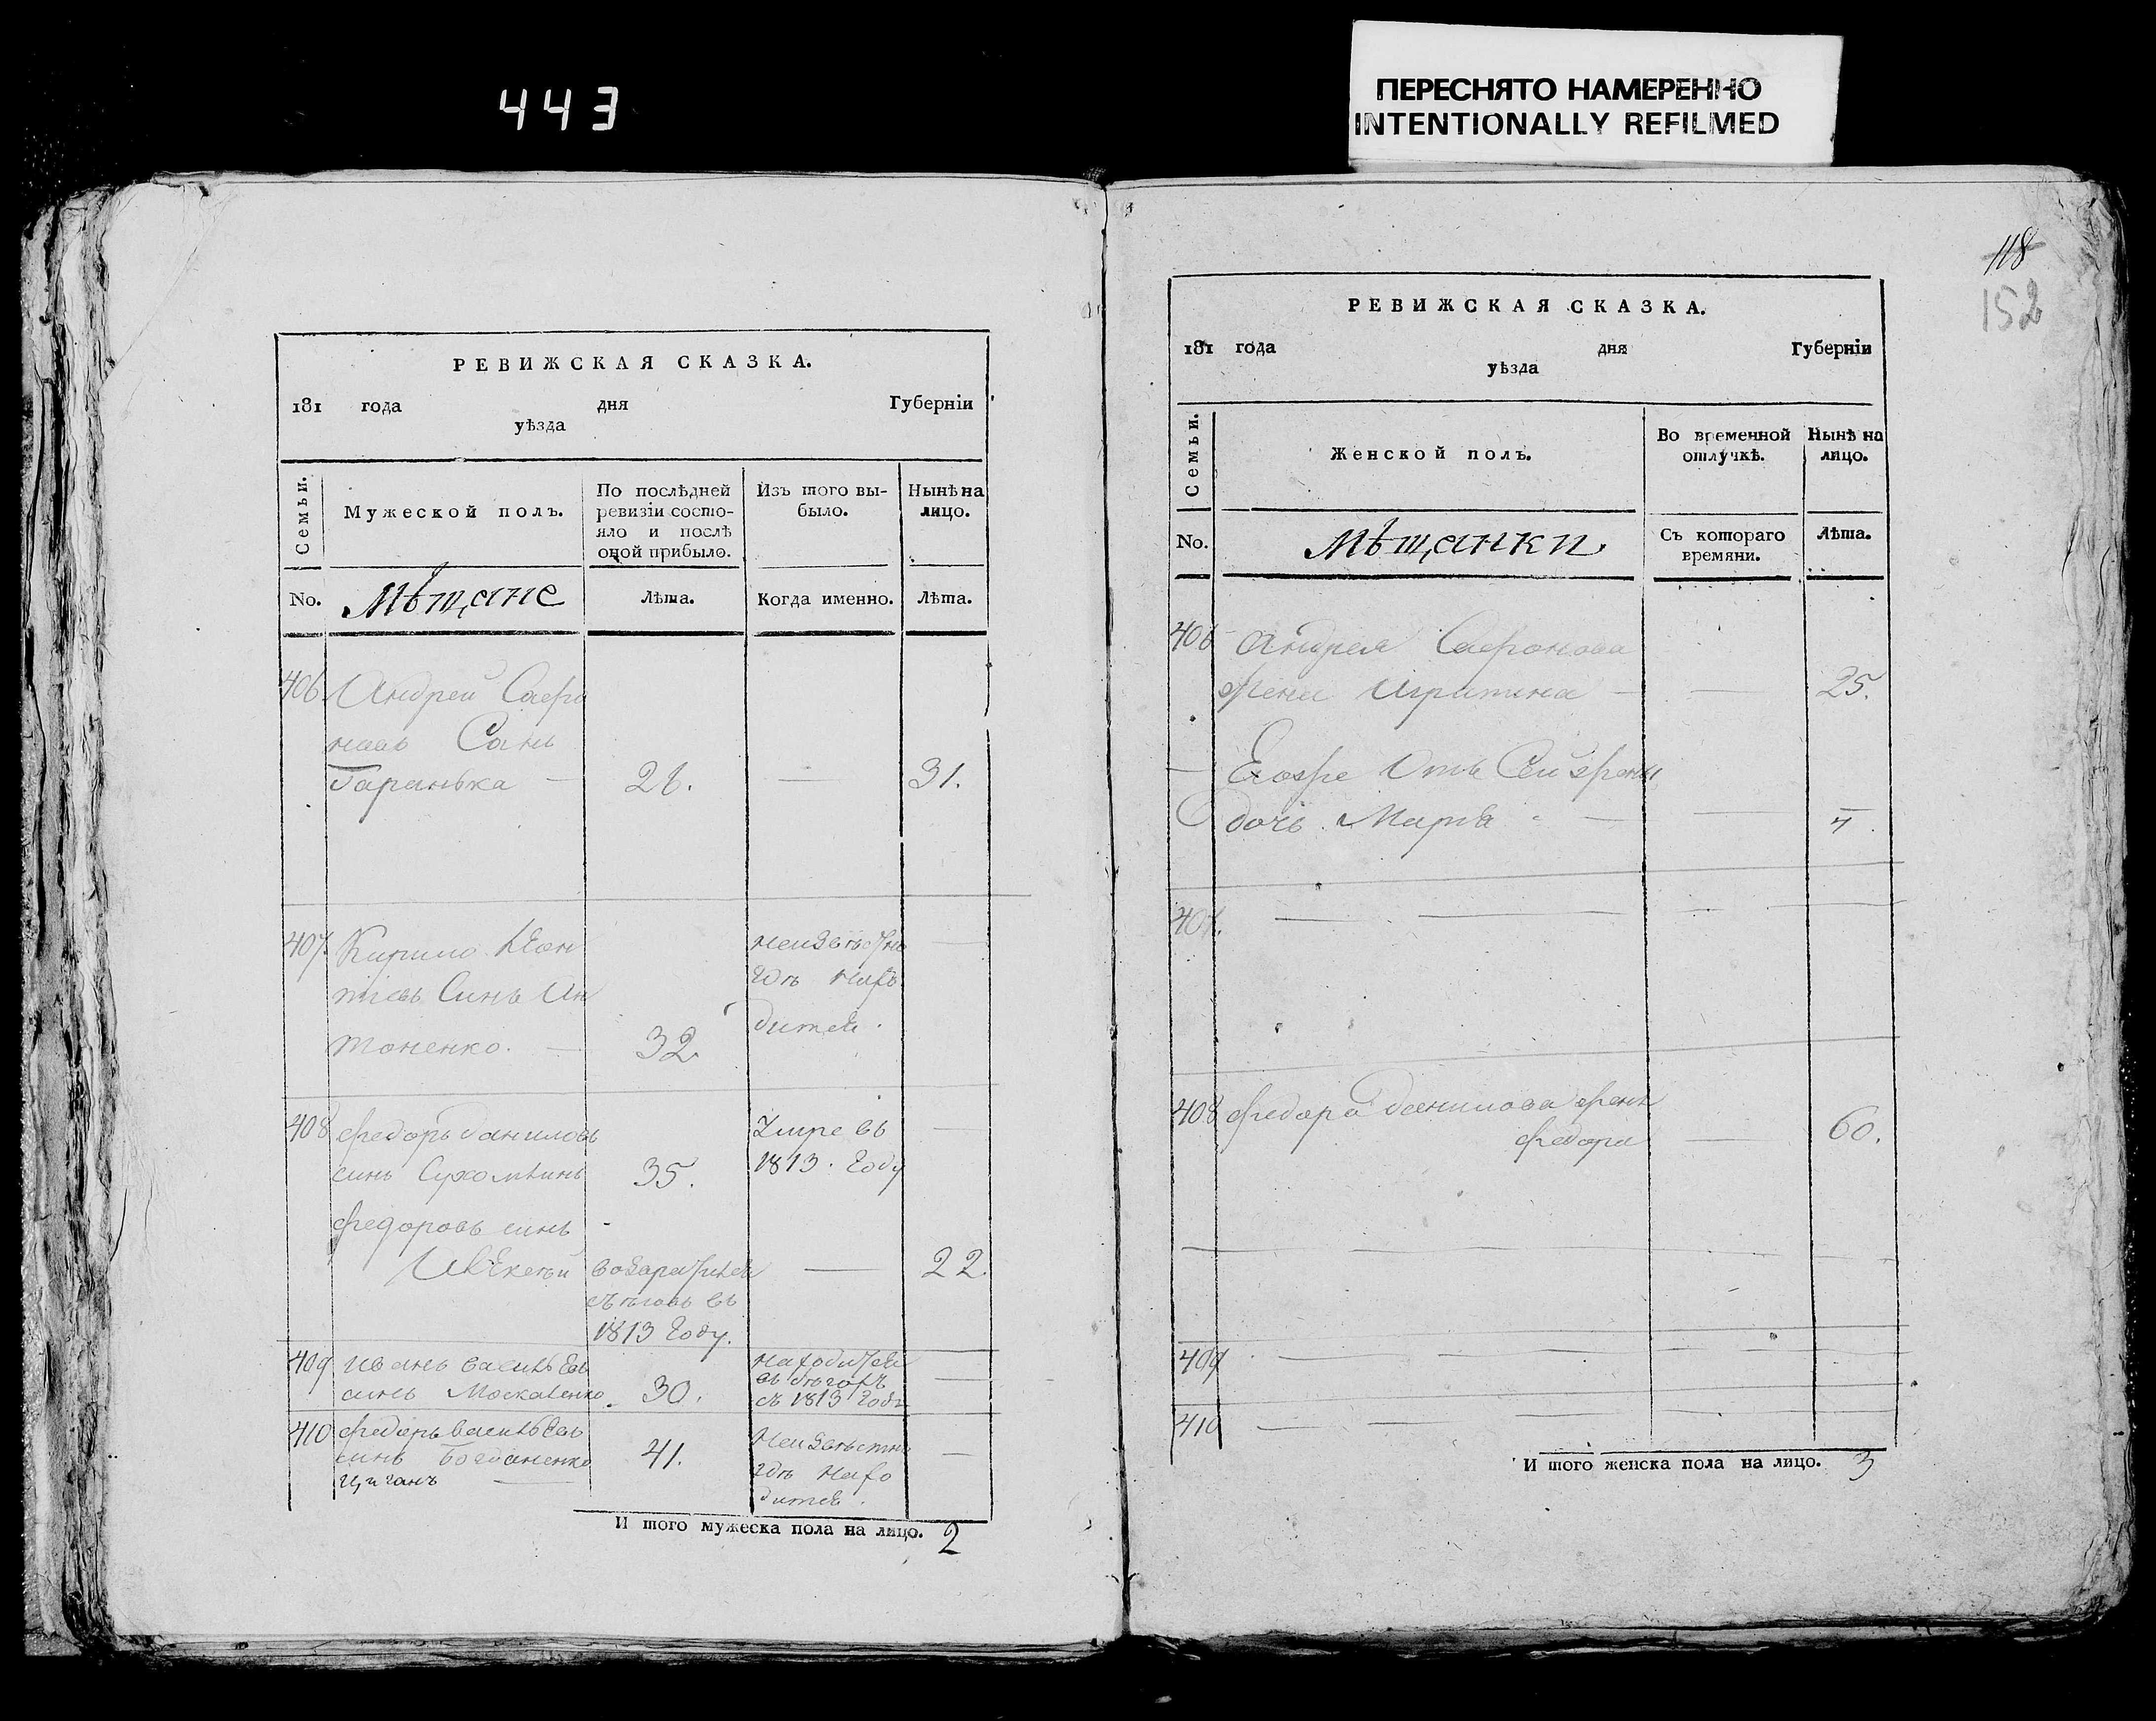 443
ПЕРЕСНЯТО НАМЕРЕННО
INTENTIONALLY REFILMED
118
152
РЕВИЖСКАЯ СКАЗКА.
181 года дня Губерніи
уѣзда
Семьи. Мужеской полъ. По послѣдней ревизіи состояло и послѣ оной прибыло. Изъ того выбыло. Нынѣ на лицо.
No. Мѣщане Лѣта. Когда именно. Лѣта.
406 Андрей Сафро
новъ Синъ
Гаранька — 26. — 31.
407. Кирило Леон
тіевъ Синъ Ан
тоненко. — 32.
неизвѣстно —
гдѣ нахо
дится.
408 Федоръ Даниловъ
синъ Сухомлинъ 35.
Умре въ —
1813. Году
Федоровъ синъ
22.
1813 Году.
409 Иванъ Васильевъ
синъ Москаленко 30.
находится —
въ бѣгахъ —
съ 1813 Году
410 Федоръ Васильевъ
синъ Богданенко 41.
Циганъ —
Неизвѣстно
гдѣ нахо —
дится.
И того мужеска пола на лицо. 2
РЕВИЖСКАЯ СКАЗКА.
181 года дня Губерніи
уѣзда
Семьи. Женской полъ. Во временной отлучкѣ. Нынѣ на лицо.
No. Мѣщанки Съ котораго времяни. Лѣта.
406 Андрея Сафронова
жена — — 25.
дочь Марія — — 4.
407. — — — —
408 Федора Данилова жена
Федора — 60.
409 — — — —
410 — — — —
И того женска пола на лицо. 3